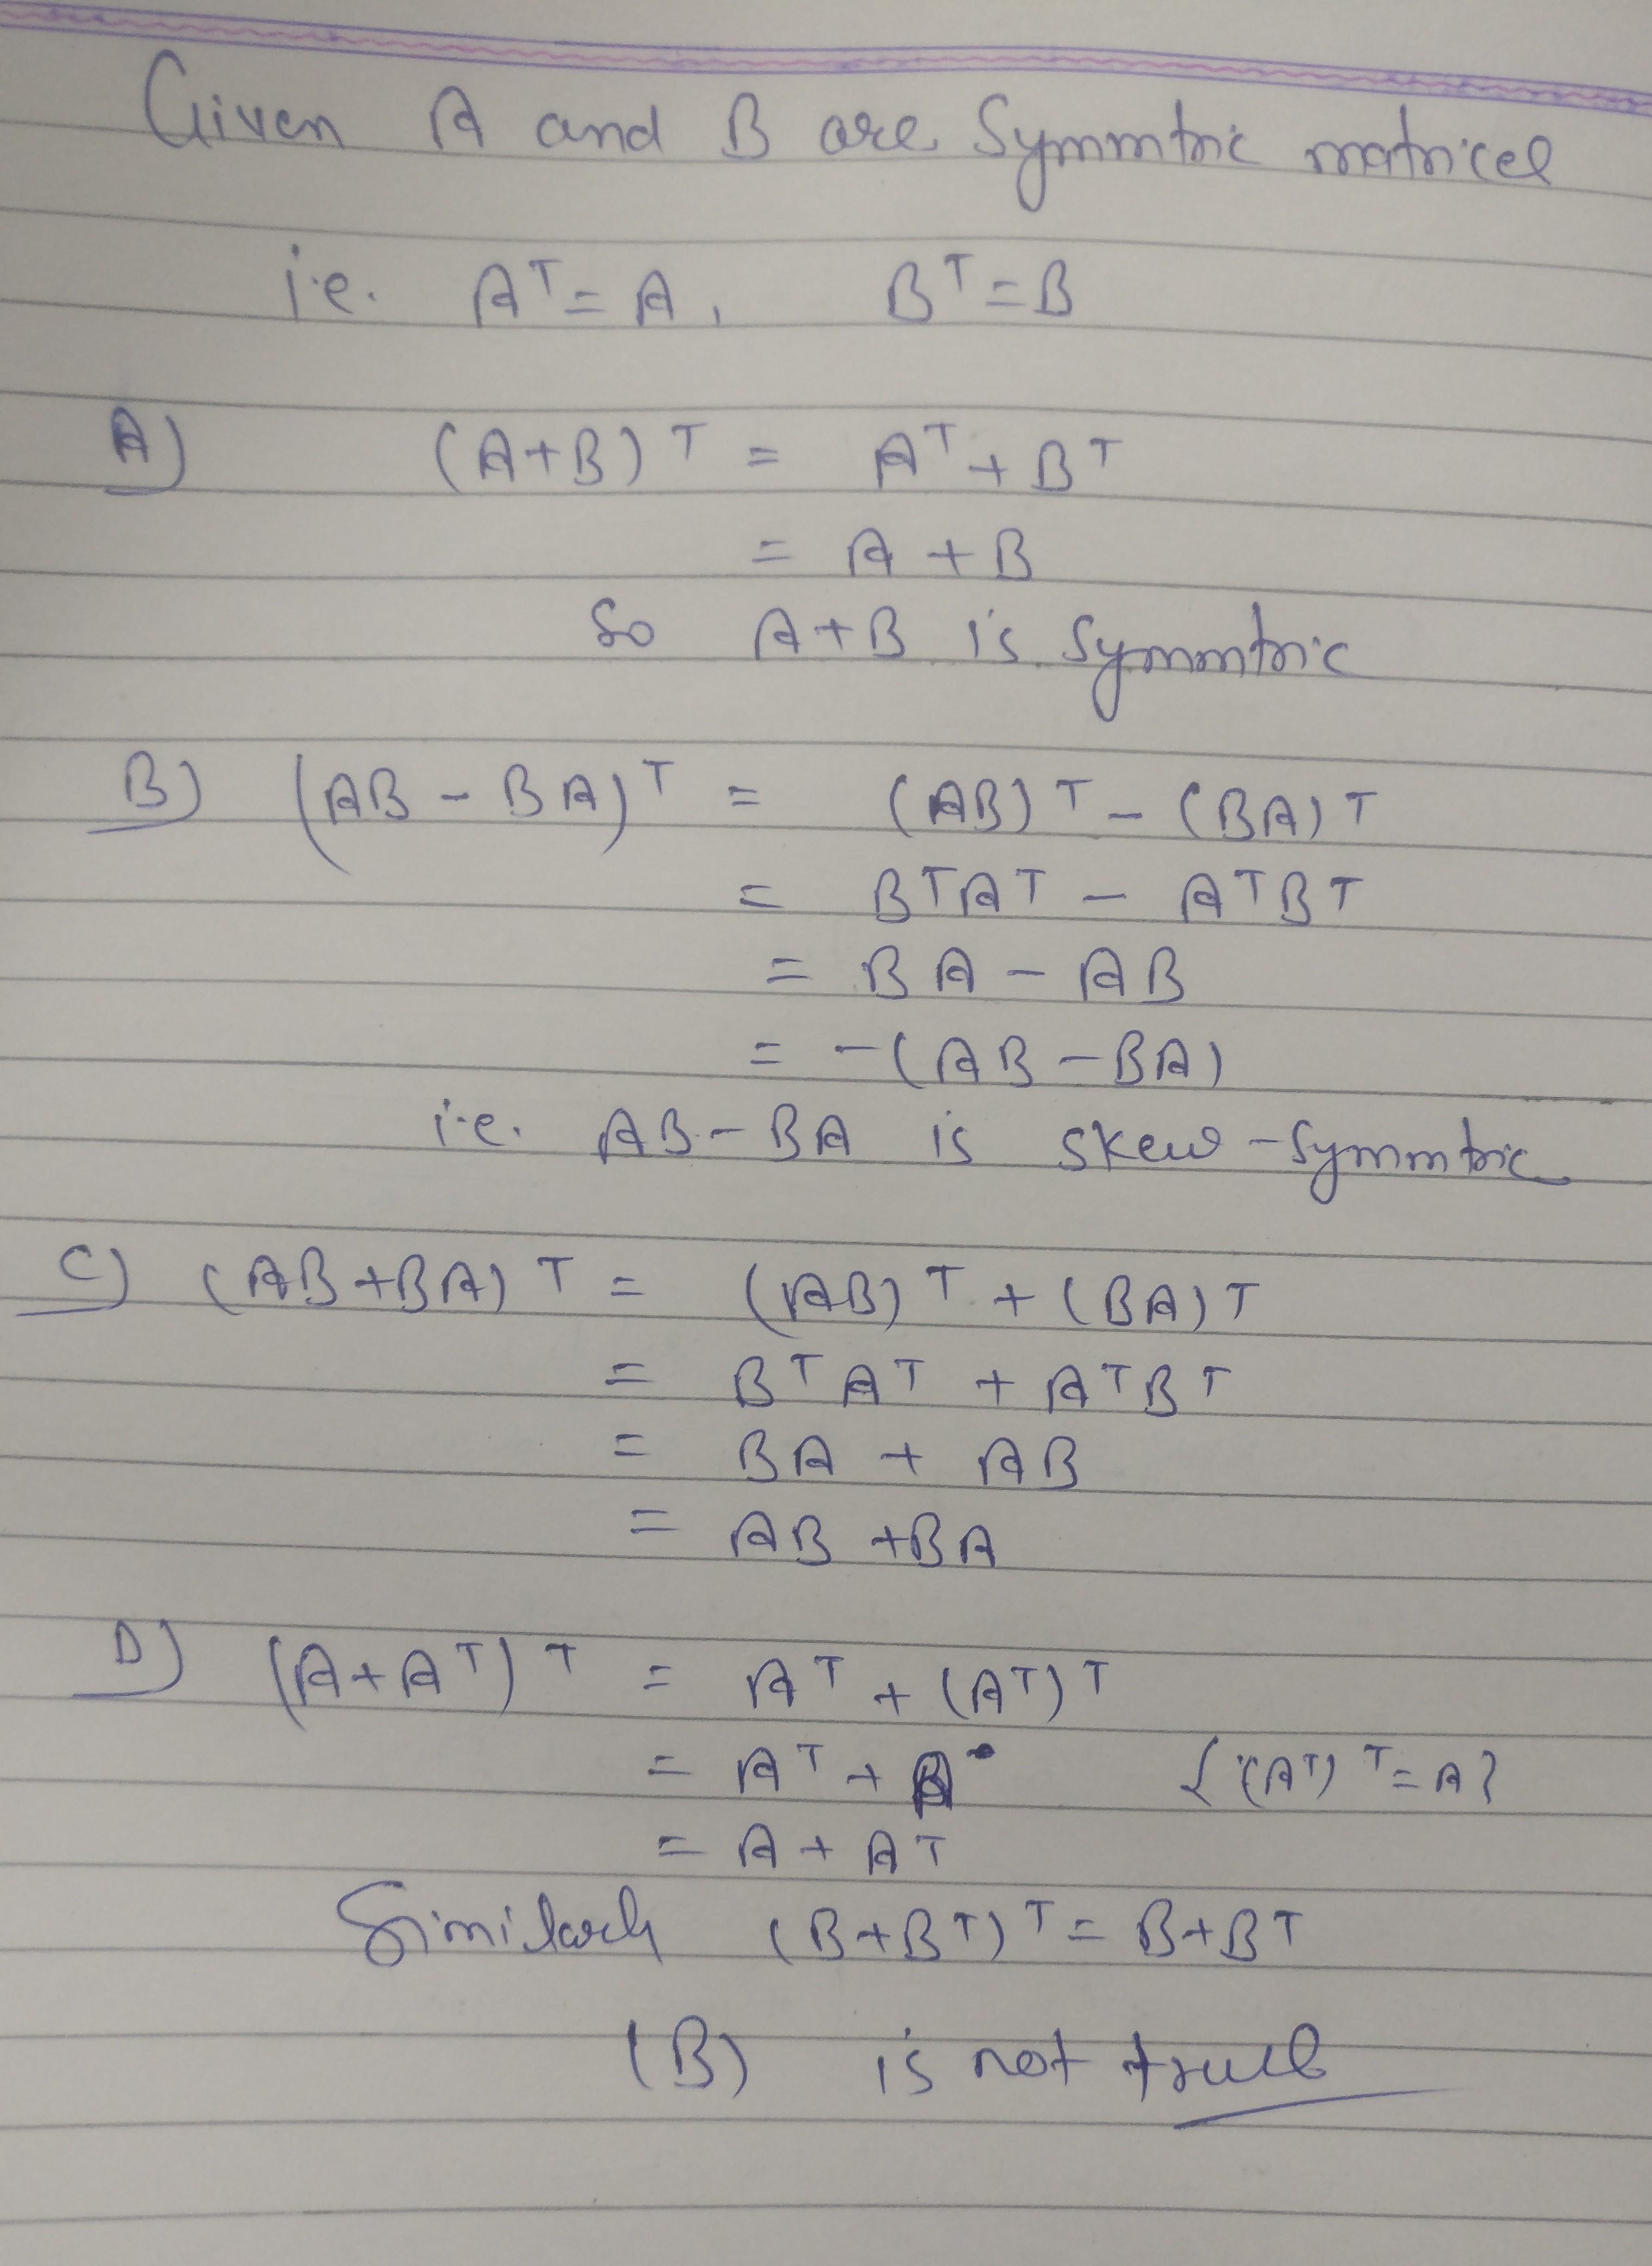 Given A and B are Symmtric matrices
i.e. Aᵀ = A, Bᵀ = B
A) (A+B)ᵀ = Aᵀ + Bᵀ
= A + B
So A+B is Symmtric
B) (AB - BA)ᵀ = (AB)ᵀ - (BA)ᵀ
= BᵀAᵀ - AᵀBᵀ
= BA - AB
= -(AB - BA)
i.e. AB - BA is skew-Symmtric
C) (AB+BA)ᵀ = (AB)ᵀ + (BA)ᵀ
= BᵀAᵀ + AᵀBᵀ
= BA + AB
= AB + BA
D) (A+Aᵀ)ᵀ = Aᵀ + (Aᵀ)ᵀ
= Aᵀ + A {∵(Aᵀ)ᵀ = A}
= A + Aᵀ
Similarly (B+Bᵀ)ᵀ = B+Bᵀ
(B) is not true